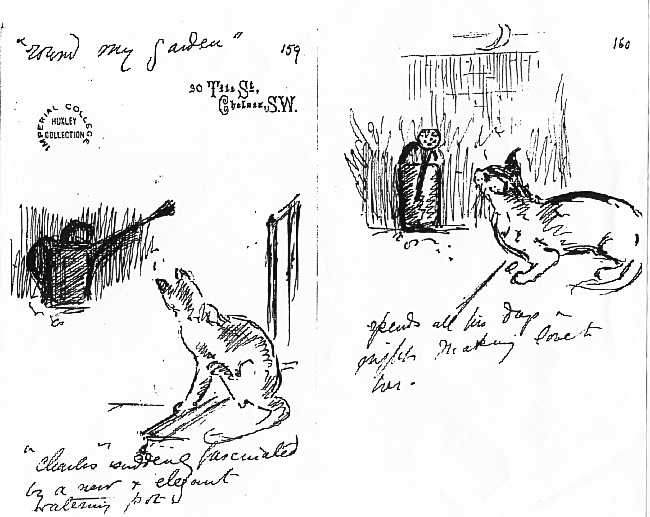 "round my garden"
159
30 Tite St,
Chelsea, S.W.
IMPERIAL COLLEGE
HUXLEY
COLLECTION
"Charles" suddenly fascinated
by a new & elegant
watering pot &
160
spends all his days &
nights making love to
her.